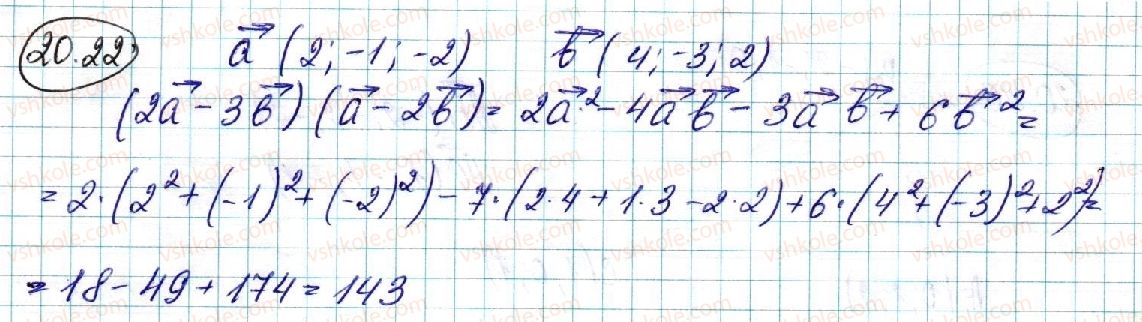 20.22 a⃗ (2; -1; -2) b⃗ (4; -3; 2)
(2a⃗ - 3b⃗)(a⃗ - 2b⃗) = 2a⃗² - 4a⃗b⃗ - 3a⃗b⃗ + 6b⃗² =
= 2·(2² + (-1)² + (-2)²) - 7·(2·4 + 1·3 - 2·2) + 6·(4² + (-3)² + 2²) =
= 18 - 49 + 174 = 143